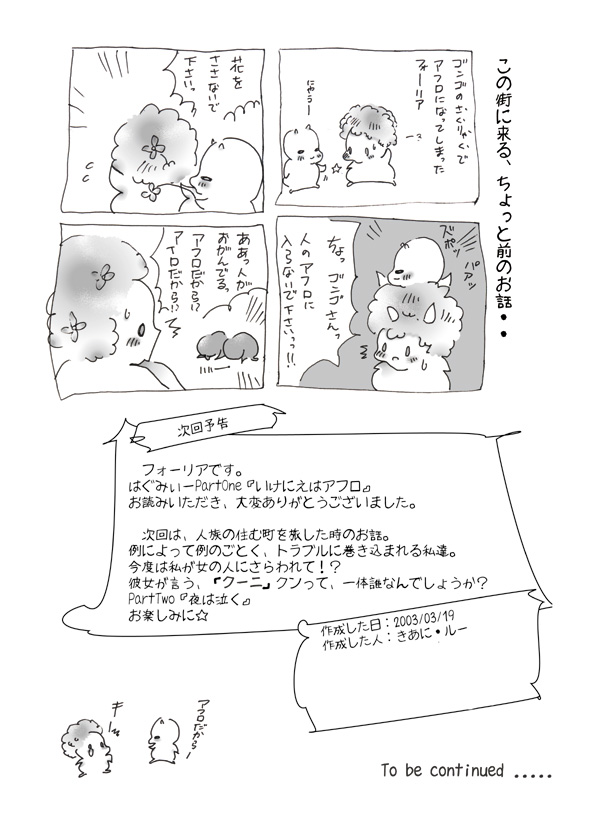 この街に来る、ちょっと前のお話・・
ゴンゴのさくりゃくで
アフロになってしまった
フォーリア
ー?
にゃうー
花を
ささないで
下さいっ
ズボッ
パアッ
ちょっ ゴンゴさんっ
人のアフロに
入らないで下さいっっ!!
ああっ人が
おがんでるっ
アフロだから!?
アイロだから!?
次回予告
フォーリアです。
はぐみぃーPartOne『いけにえはアフロ』
お読みいただき、大変ありがとうございました。
次回は、人族の住む町を旅した時のお話。
例によって例のごとく、トラブルに巻き込まれる私達。
今度は私が女の人にさらわれて!?
彼女が言う、「クーニ」クンって、一体誰なんでしょうか?
PartTwo『夜は泣く』
お楽しみに☆
作成した日:2003/03/19
作成した人:きあに・ルー
キー
アフロだからー
To be continued .....